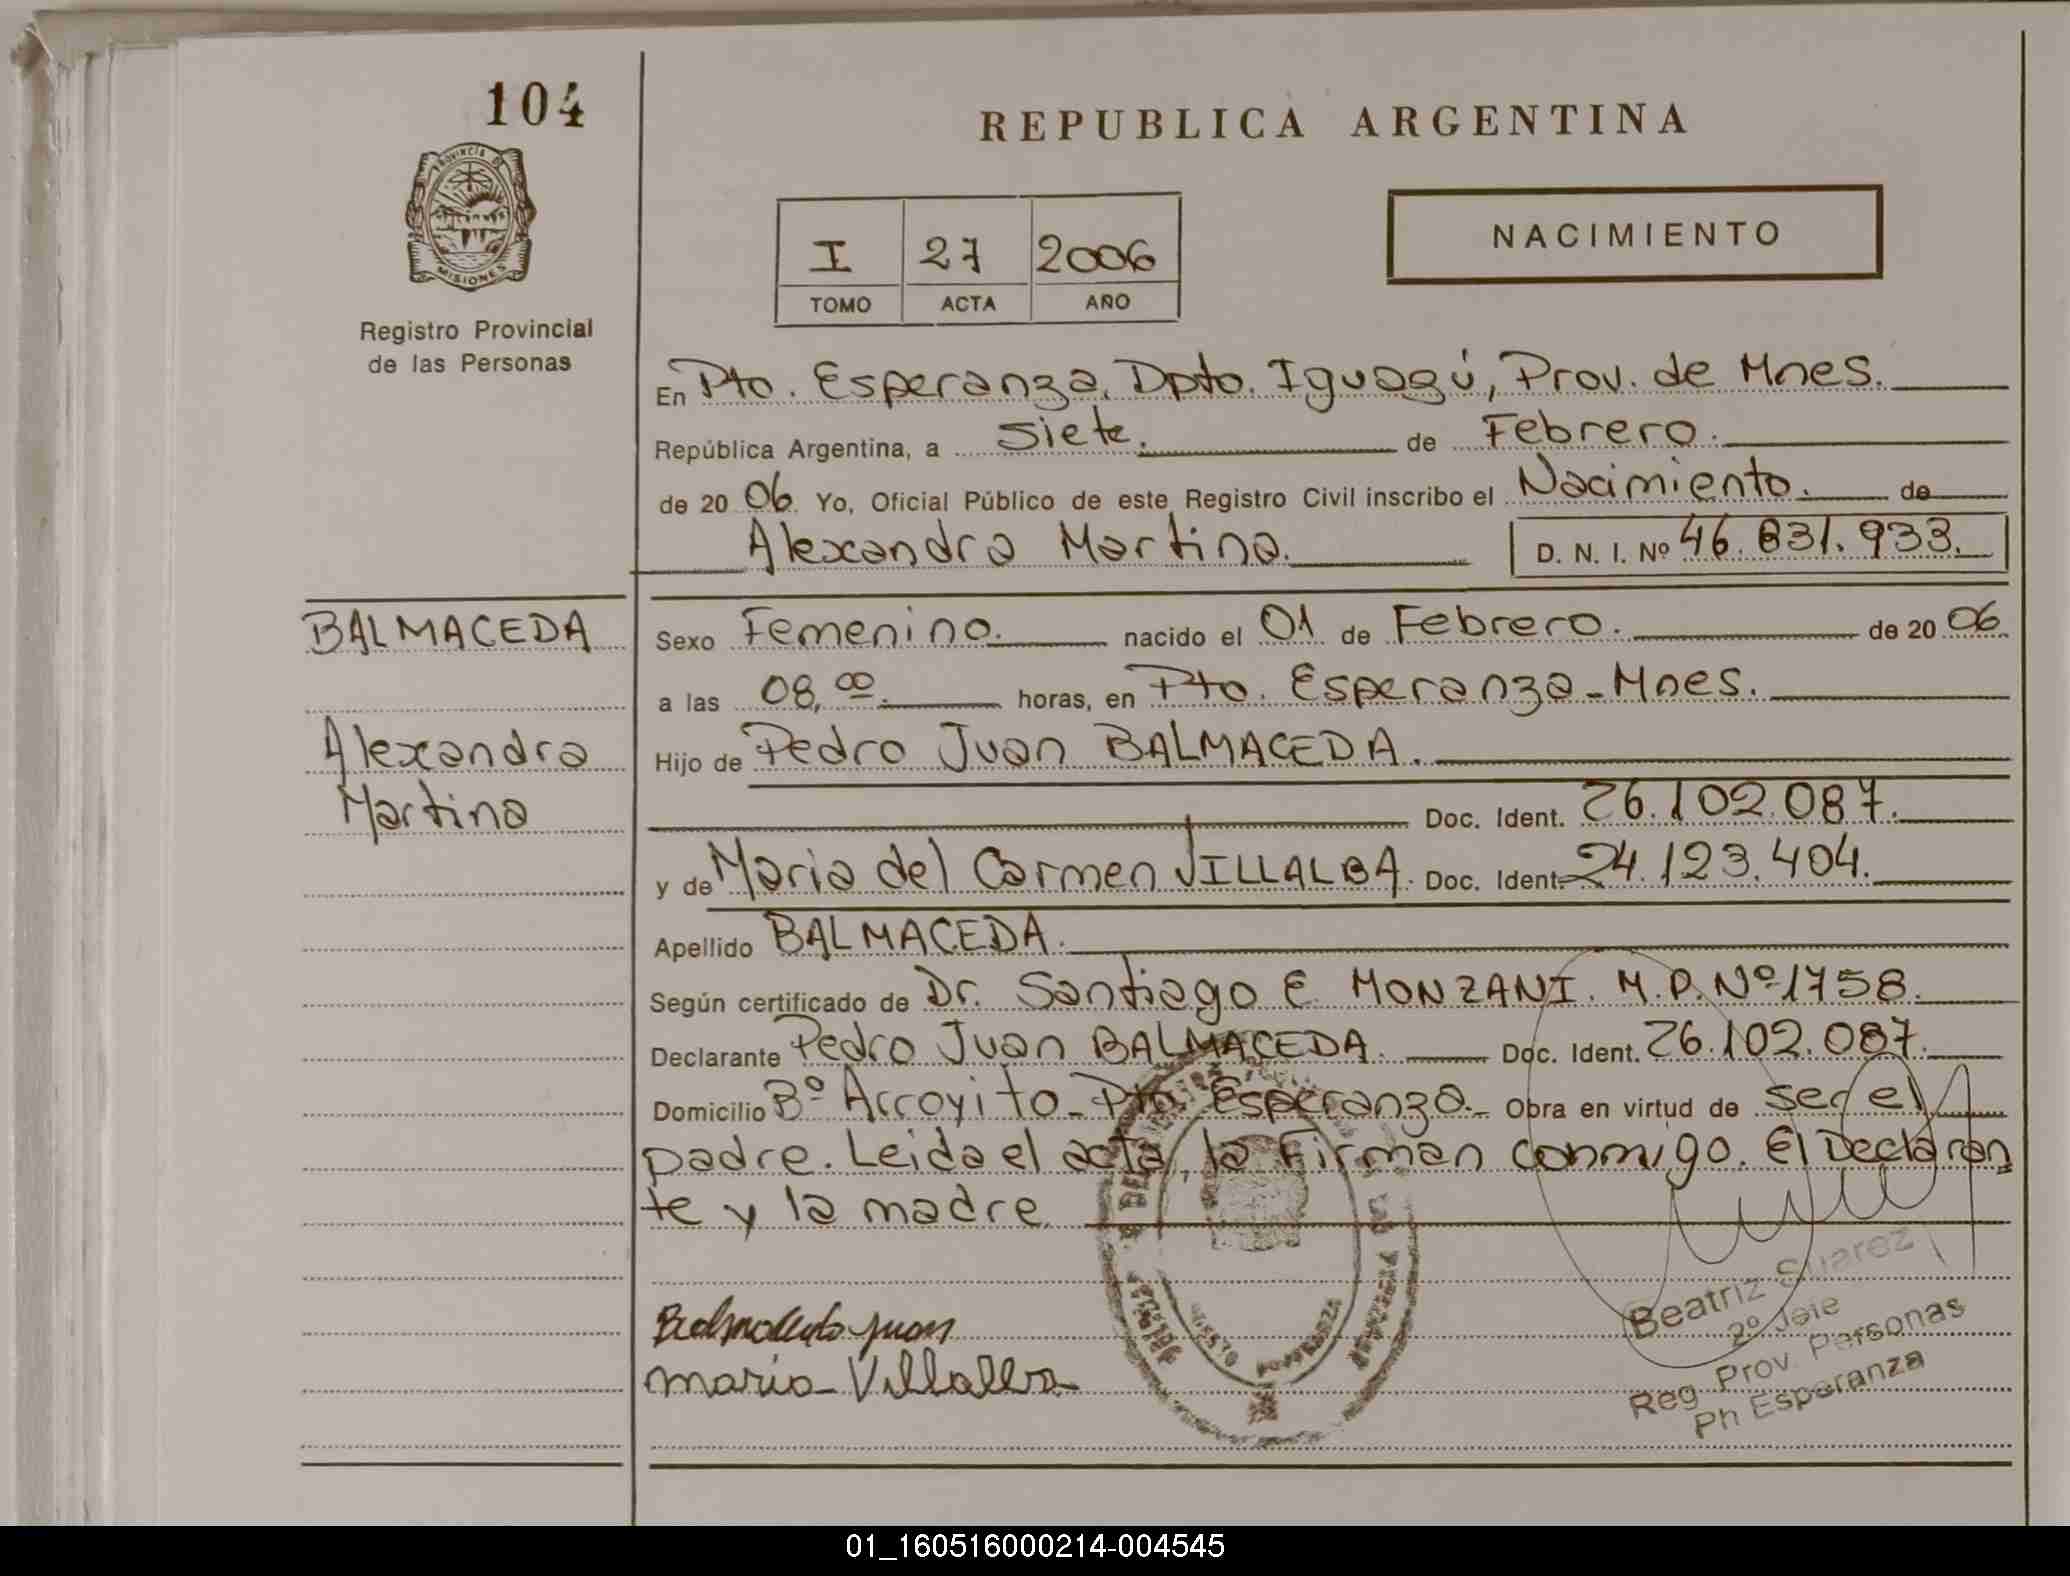 104
REPUBLICA ARGENTINA
PROVINCIA DE
MISIONES
Registro Provincial
de las Personas
I 27 2006
TOMO ACTA AÑO
NACIMIENTO
En Pto. Esperanza, Dpto. Iguazú, Prov. de Mnes.
República Argentina, a Siete. de Febrero.
de 20 06. Yo, Oficial Público de este Registro Civil inscribo el Nacimiento. de
Alexandra Martina. D. N. I. Nº 46.831.933.
BALMACEDA
Alexandra
Martina
Sexo Femenino. nacido el 01 de Febrero. de 20 06.
a las 08,00. horas, en Pto. Esperanza - Mnes.
Hijo de Pedro Juan BALMACEDA.
Doc. Ident. 26.102.087.
y de Maria del Carmen VILLALBA. Doc. Ident. 24.123.404.
Apellido BALMACEDA.
Según certificado de Dr. Santiago E. MONZANI. M.P. Nº 1758.
Declarante Pedro Juan BALMACEDA. Doc. Ident. 26.102.087.
Domicilio Bº Arroyito - Pto. Esperanza.- Obra en virtud de ser el
padre. Leida el acta, la Firman conmigo. El Declaran
te y la madre.
Juan
maria Villalba
PUERTO ESPERANZA
Beatriz Suarez
2º Jefe
Reg. Prov. Personas
Ph Esperanza
01_160516000214-004545